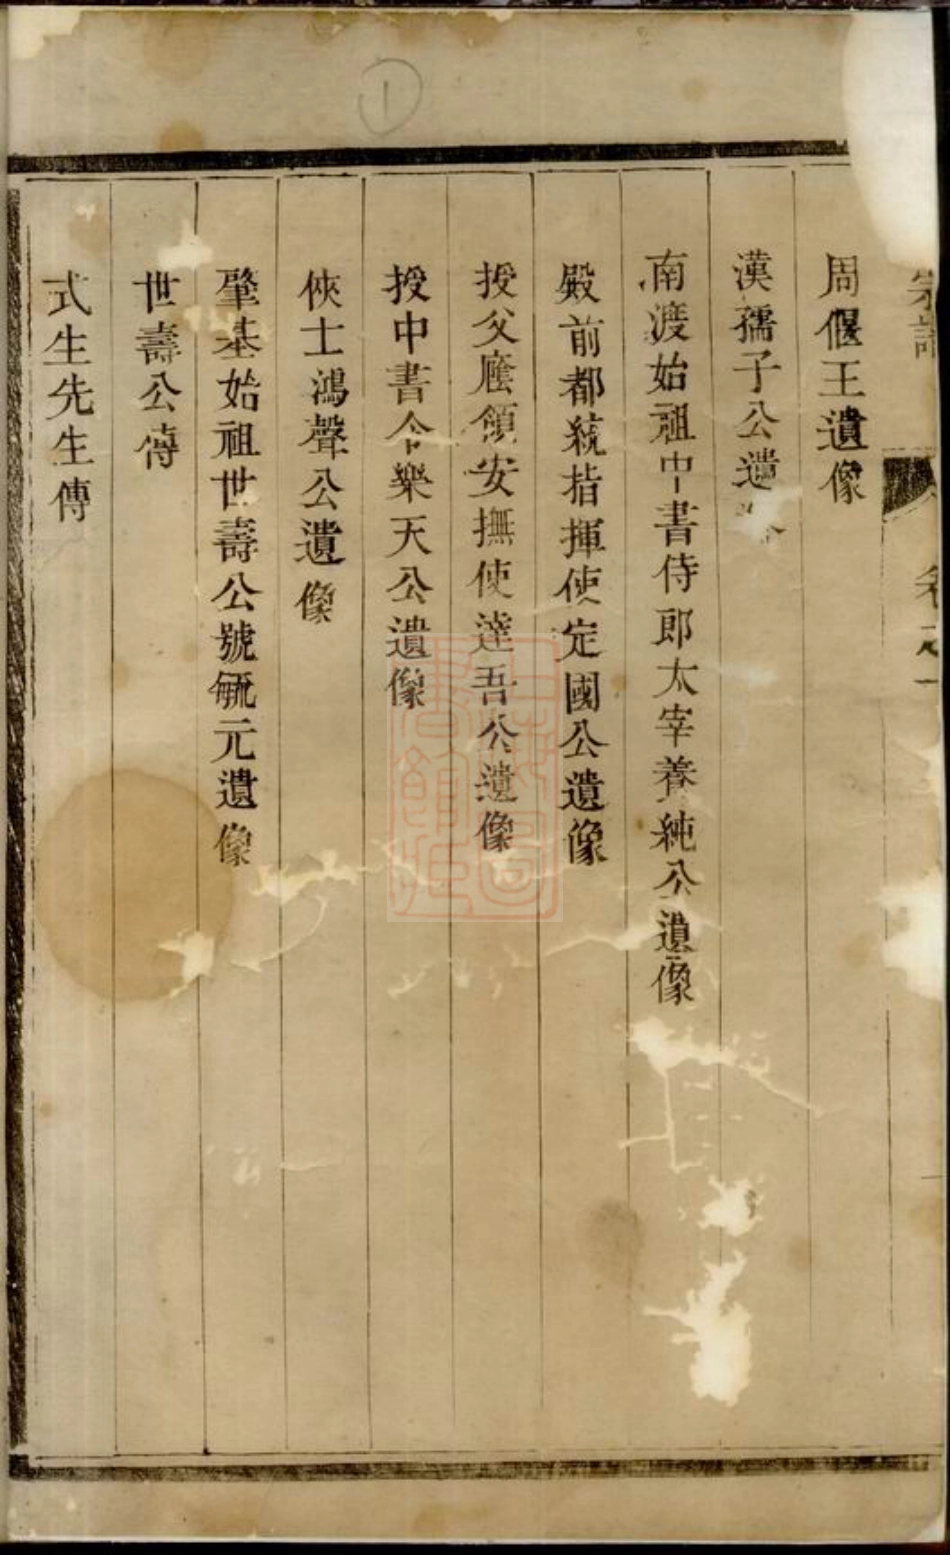 宗譜 卷之一
周偃王遺像
漢孺子公遺
南渡始祖中書侍郎太宰養純公遺像
殿前都統指揮使定國公遺像
授父廕領安撫使達吾公遺像
授中書令樂天公遺像
俠士鴻聲公遺像
肇基始祖世壽公號毓元遺像
世壽公傳
式生先生傳
1